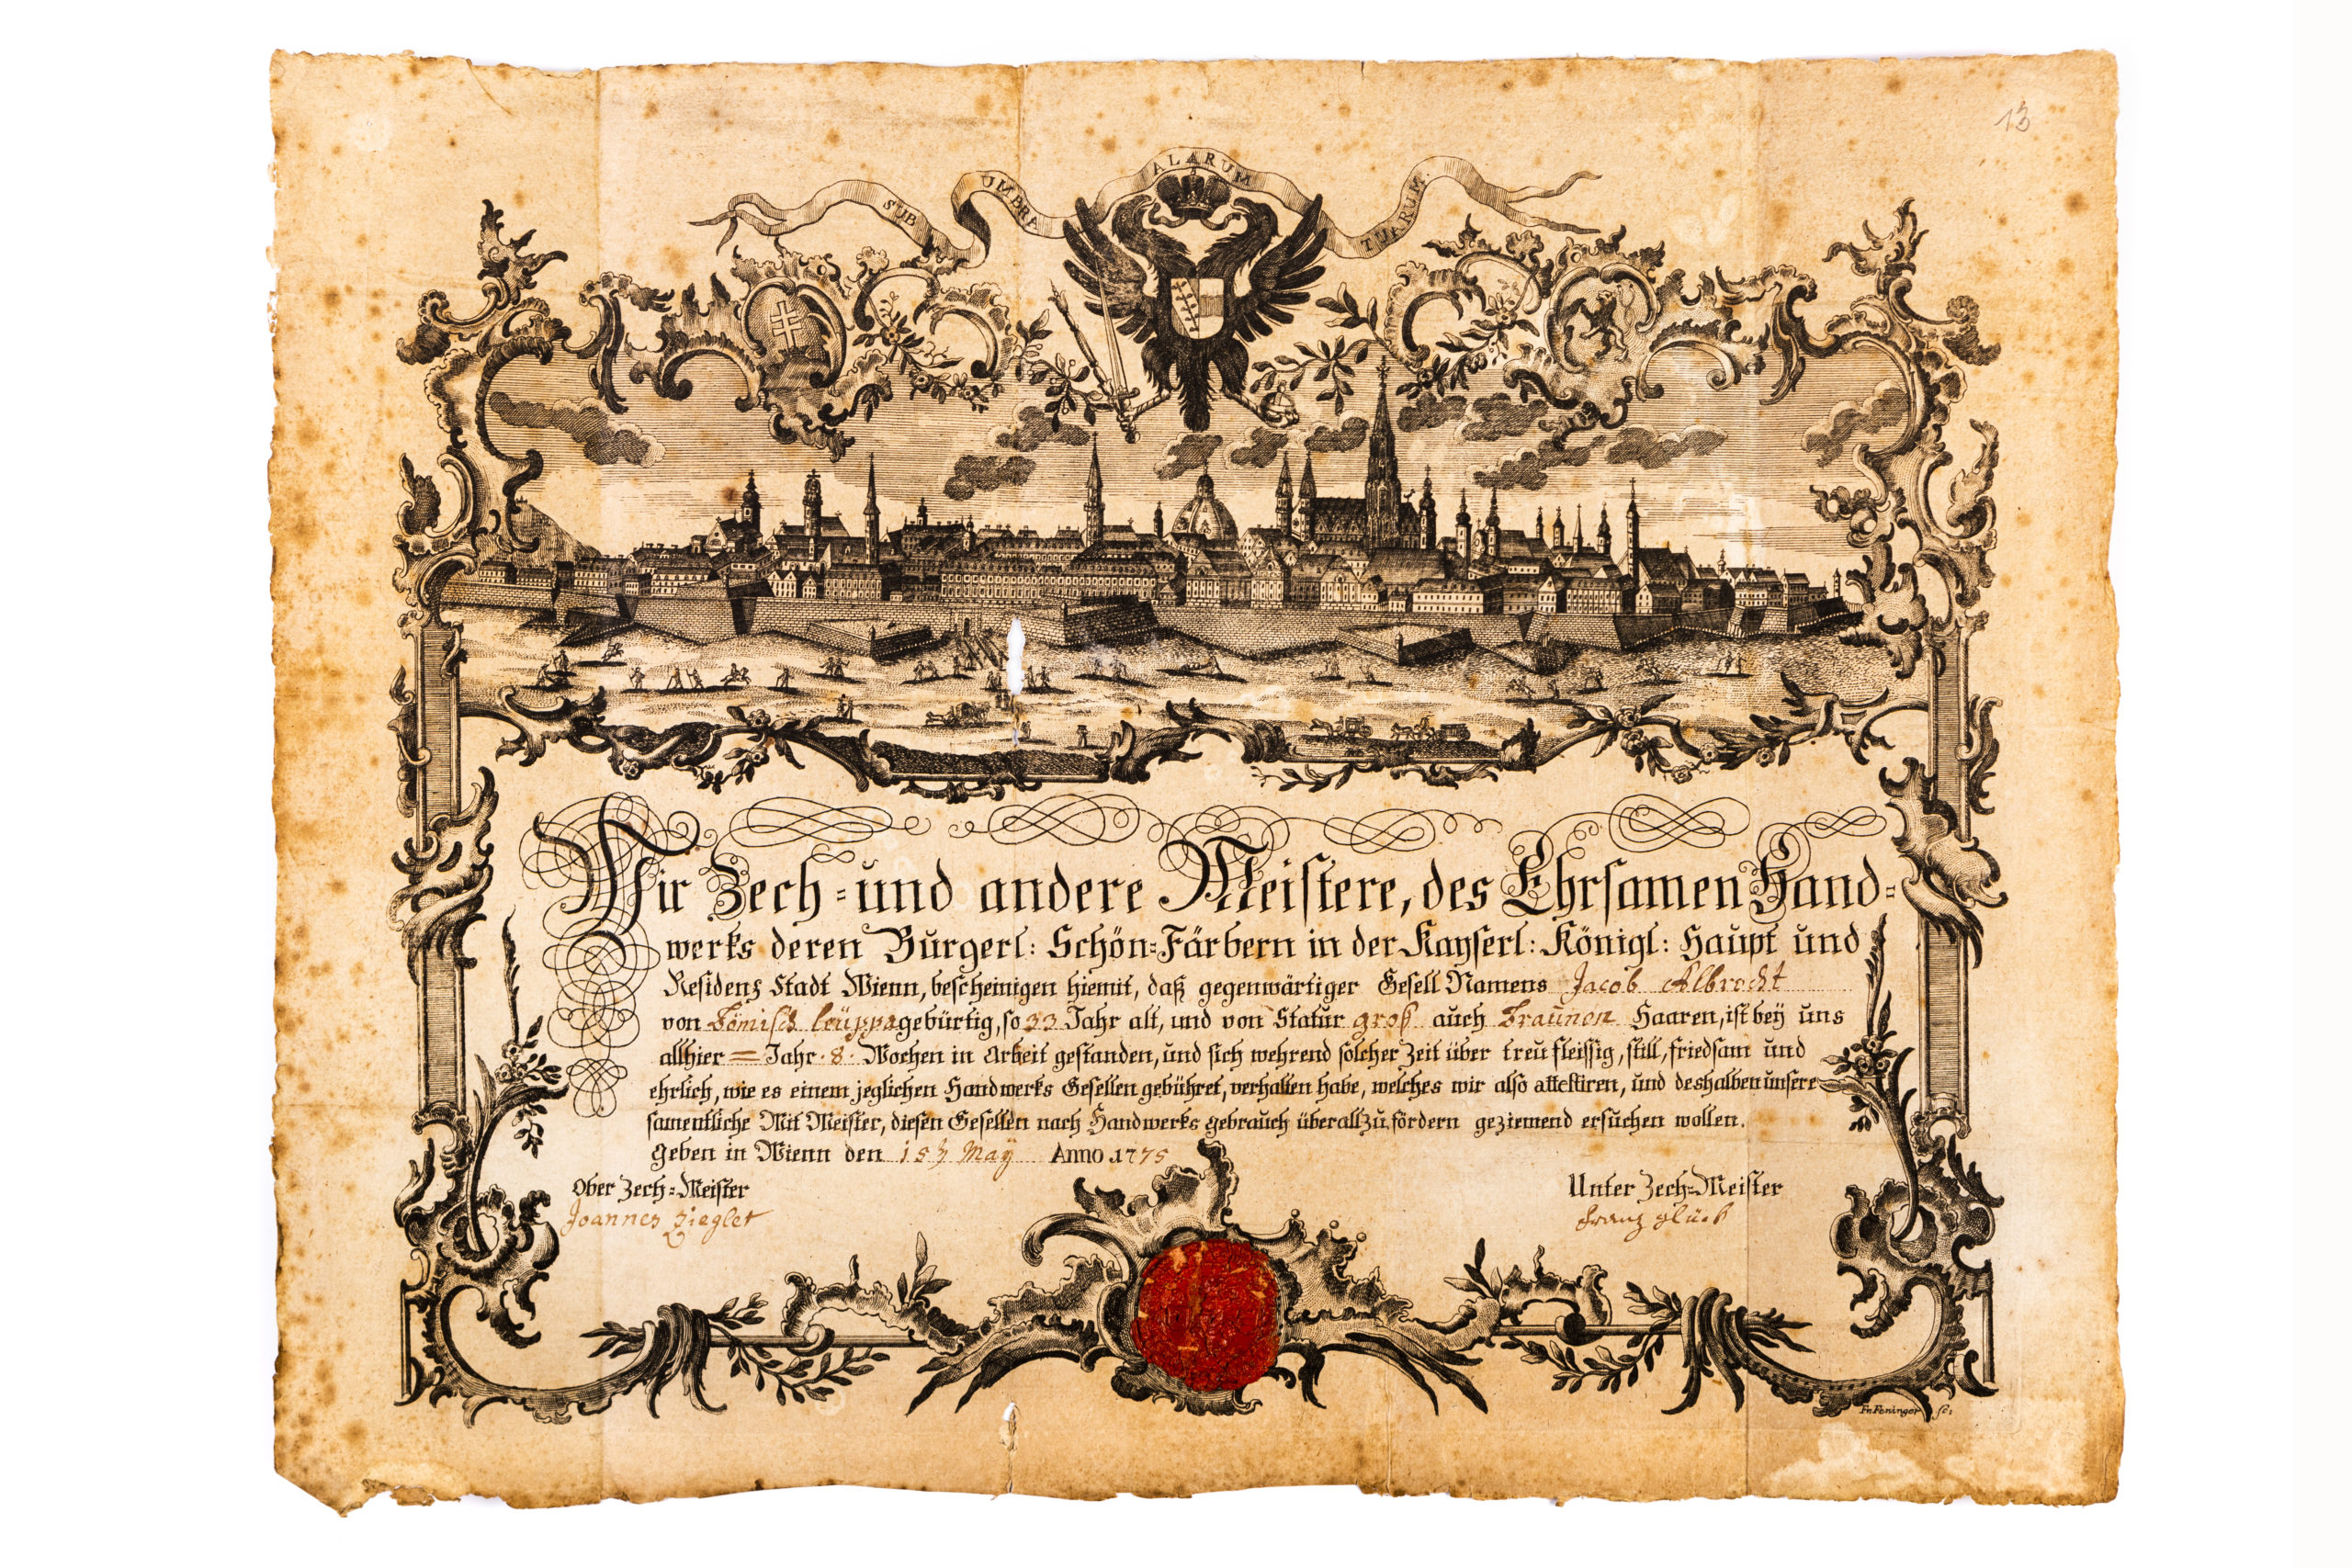 13
SUB UMBRA ALARUM TUARUM.
Wir Zech=und andere Meistere, des Ehrsamen Hand=
werks deren Burgerl: Schön=Färbern in der Kayserl: Königl: Haupt und
Residenz Stadt Wienn, bescheinigen hiemit, daß gegenwärtiger Gesell Namens Jacob Albrecht
von Bömisch leüppa gebürtig, so 23 Jahr alt, und von Statur groß auch Braunen Haaren, ist beÿ uns
allhier = Jahr 8 Wochen in Arbeit gestanden, und sich wehrend solcher Zeit über treu fleissig, still, friedsam und
ehrlich, wie es einem jeglichen Handwerks Gesellen gebühret, verhalten habe, welches wir also attestiren, und deshalben unsere
samentliche Mit Meister, diesen Gesellen nach Handwerks gebrauch überall zu fördern geziemend ersuchen wollen.
geben in Wienn den 15 Maÿ Anno 1775
Ober Zech=Meister Unter Zech=Meister
Joannes Ziegler Franz Glück